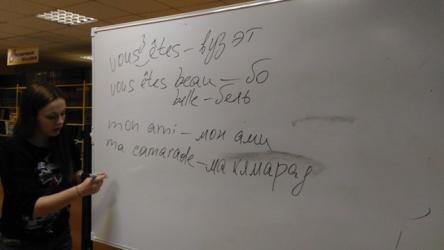 vous êtes – вуз эт
vous êtes beau – бо
belle – бель
mon ami – мон ами
ma camarade – ма камарад